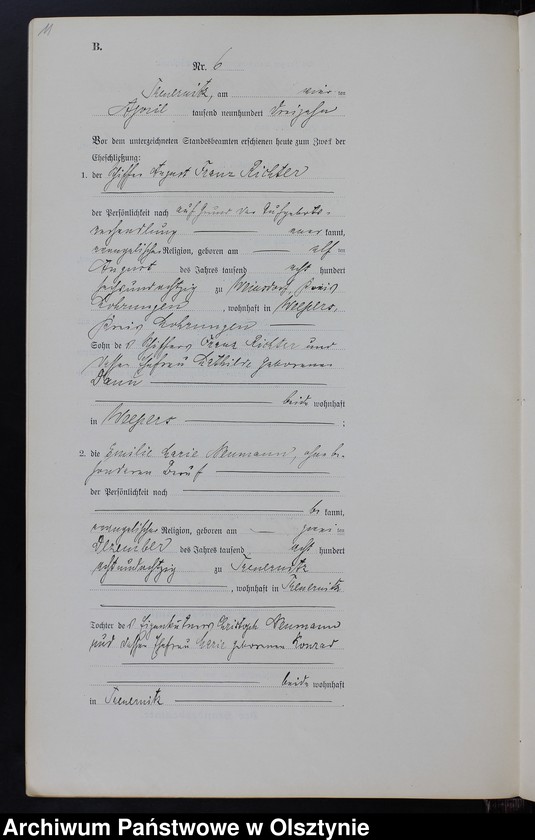 11
B.
Nr. 6
am vier ten
April tausend neunhundert dreizehn
Vor dem unterzeichneten Standesbeamten erschienen heute zum Zweck der
Eheschließung:
1. der Schiffer August Franz Richter
der Persönlichkeit nach auf Grund der Aufgebots-
verhandlung aner kannt,
evangelischer Religion, geboren am elf ten
August des Jahres tausend acht hundert
sechsundachtzig zu Kreis
Mohrungen, wohnhaft in Weepers,
Kreis Mohrungen
Sohn des Schiffers Franz Richter und
dessen Ehefrau Mathilde geborenen
beide wohnhaft
in Weepers ;
2. die Emilie Marie Neumann, ohne be-
sonderen Beruf
der Persönlichkeit nach
be kannt,
evangelischer Religion, geboren am zwei ten
Dezember des Jahres tausend acht hundert
achtundachtzig zu
, wohnhaft in
Tochter des Eigenkätners Christoph Neumann
und dessen Ehefrau Marie geborenen Konrad
beide wohnhaft
in
Archiwum Państwowe w Olsztynie